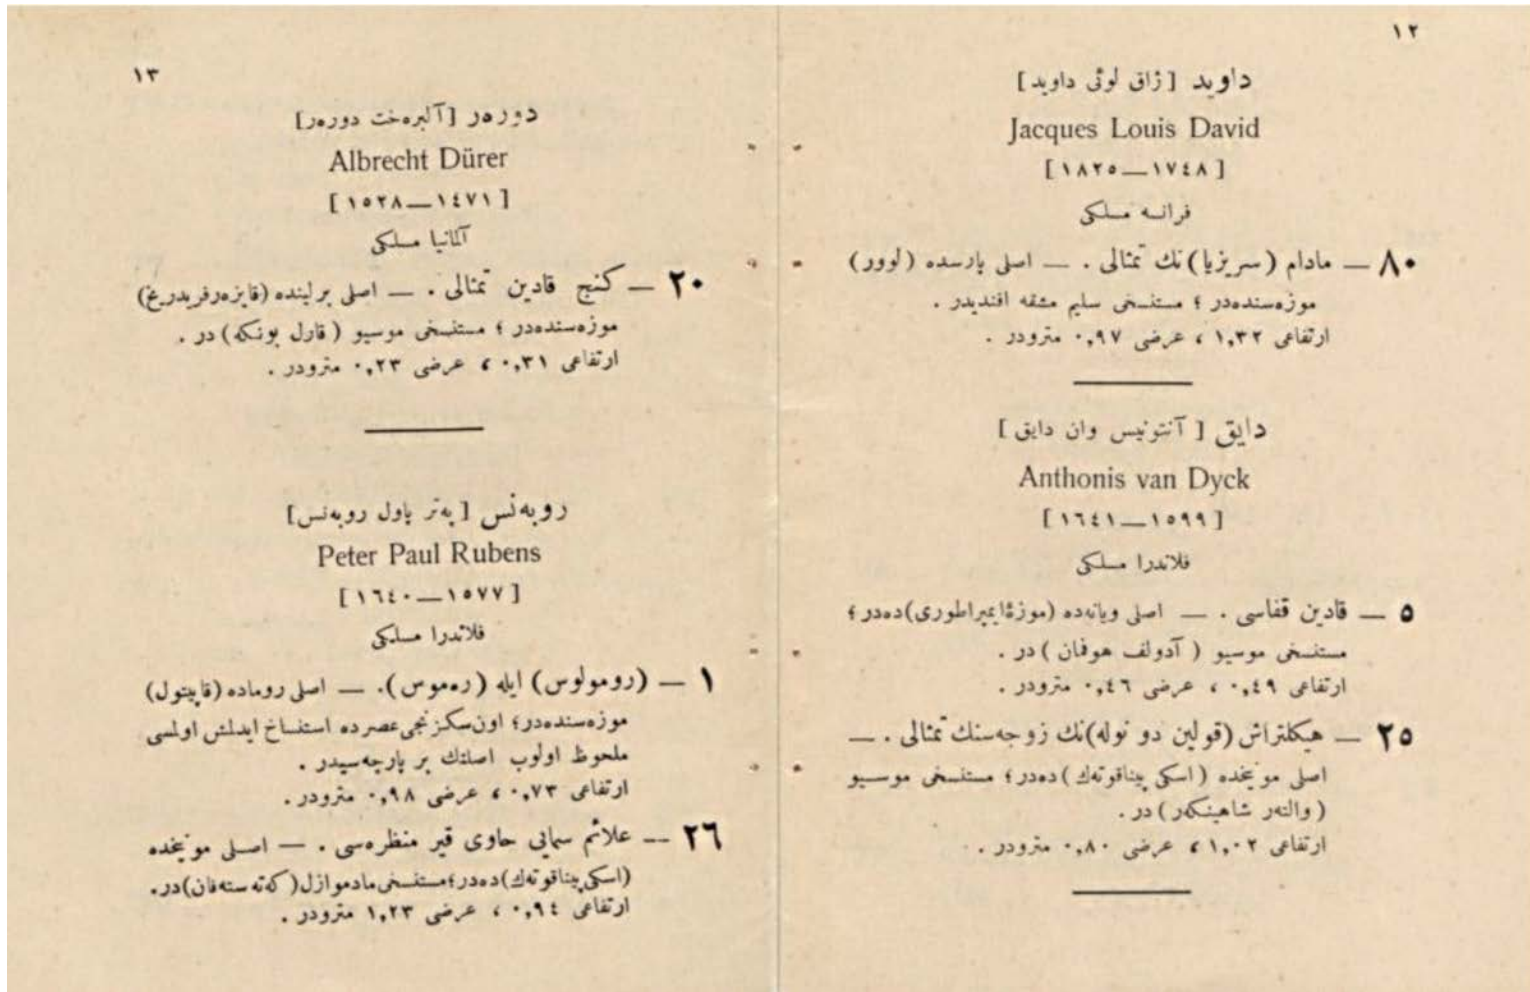 ١٢
داويد [ ژاق لوئی داويد ]
Jacques Louis David
[ ١٧٤٨ — ١٨٢٥ ]
فرانسه مسلكی
٨٠ — مادام (سريزيا) نك تمثالی . — اصلی پارسده ( لوور )
موزه‌سنده‌در ؛ مستنسخی سليم مشقه افنديدر .
ارتفاعی ١,٣٢ ، عرضی ٠,٩٧ مترودر .
دايق [ آنتونيس وان دايق ]
Anthonis van Dyck
[ ١٥٩٩ — ١٦٤١ ]
فلاندرا مسلكی
٥ — قادين قفاسی . — اصلی ويانه‌ده (موزۀ ايمپراطوری) ده‌در ؛
مستنسخی موسيو ( آدولف هوفمان ) در .
ارتفاعی ٠,٤٩ ، عرضی ٠,٤٦ مترودر .
٢٥ — هيكلتراش (قولين دو نوله) نك زوجه‌سنك تمثالی . —
اصلی مونيخده ( اسكی پيناقوتهك ) ده‌در ؛ مستنسخی موسيو
( والتهر شاهينكهر ) در .
ارتفاعی ١,٠٢ ، عرضی ٠,٨٠ مترودر .
١٣
دورهر [ آلبره‌خت دورهر ]
Albrecht Dürer
[ ١٤٧١ — ١٥٢٨ ]
آلمانيا مسلكی
٢٠ — كنج قادين تمثالی . — اصلی برلينده (قايزهر فريدريغ)
موزه‌سنده‌در ؛ مستنسخی موسيو ( قارل بونكه ) در .
ارتفاعی ٠,٣١ ، عرضی ٠,٢٣ مترودر .
روبه‌نس [ پهتر پاول روبه‌نس ]
Peter Paul Rubens
[ ١٥٧٧ — ١٦٤٠ ]
فلاندرا مسلكی
١ — (رومولوس) ايله (ره‌موس) . — اصلی روماده (قاپيتول)
موزه‌سنده‌در ؛ اون سكزنجی عصرده استنساخ ايدلمش اولمسی
ملحوظ اولوب اصلنك بر پارچه‌سيدر .
ارتفاعی ٠,٧٣ ، عرضی ٠,٩٨ مترودر .
٢٦ — علائم سمايی حاوی قير منظره‌سی . — اصلی مونيخده
(اسكی پيناقوتهك) ده‌در ؛ مستنسخی مادموازل ( كه‌ته سته‌فان ) در .
ارتفاعی ٠,٩٤ ، عرضی ١,٢٣ مترودر .